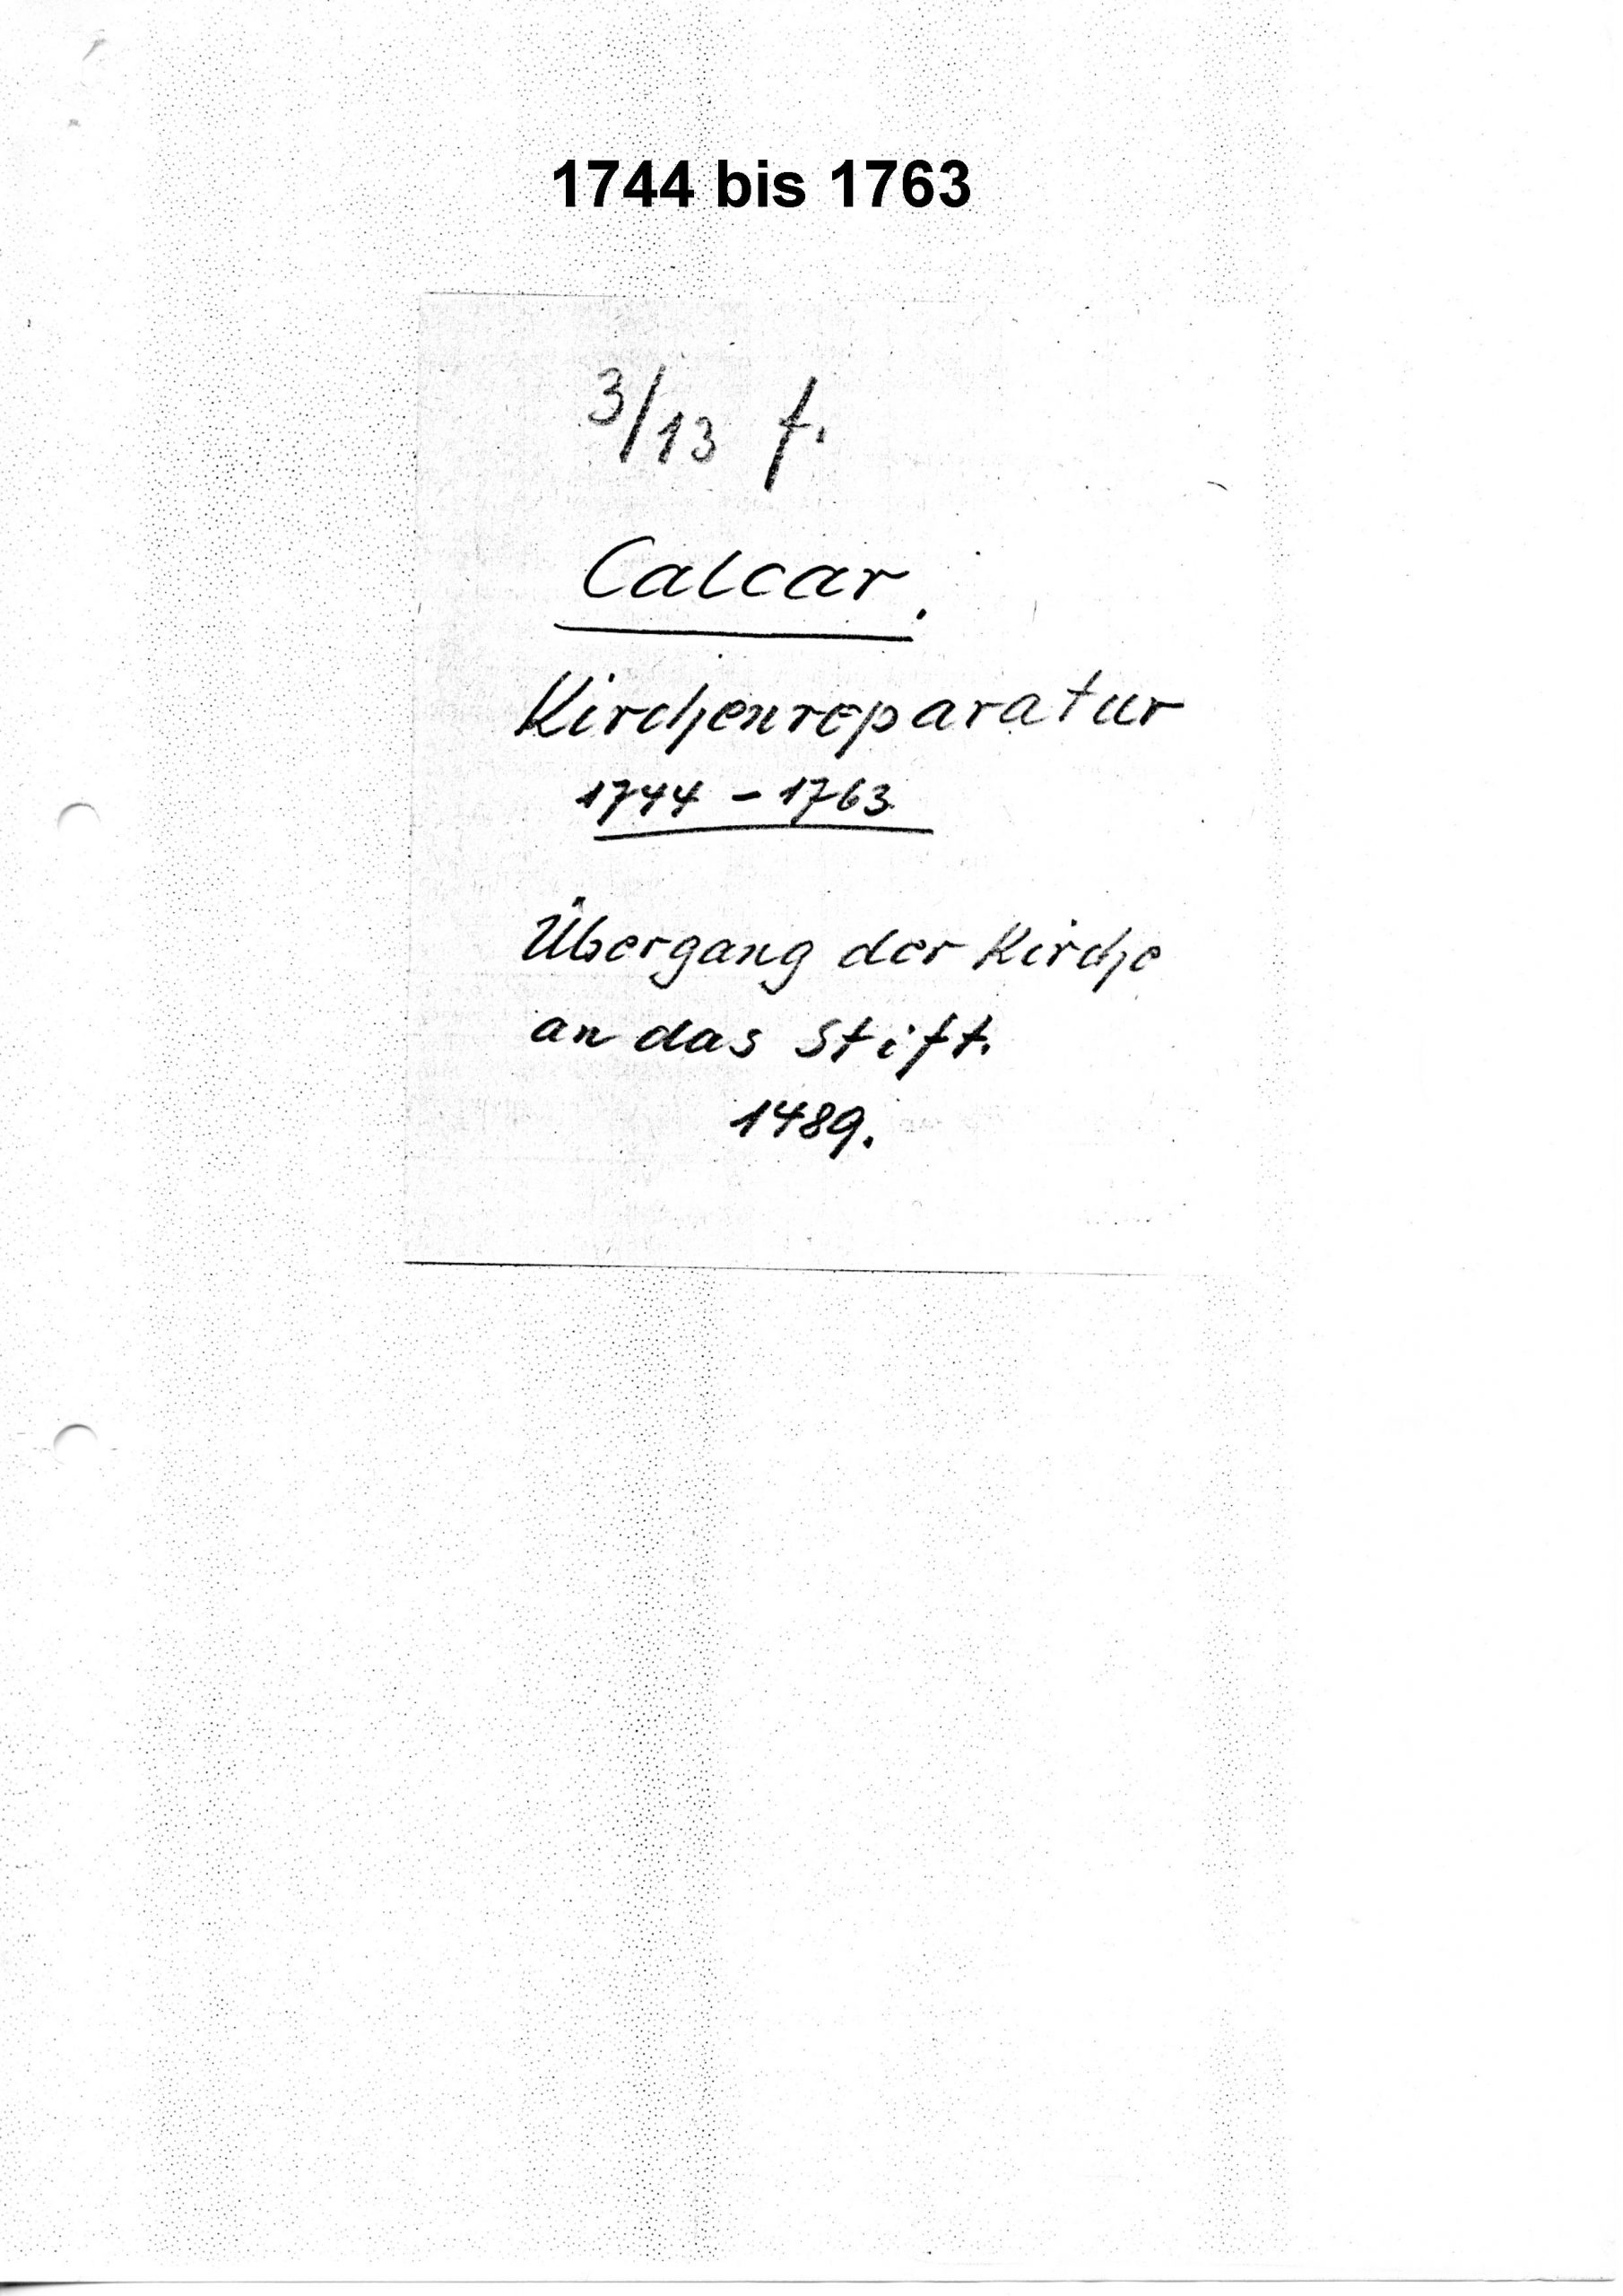 1744 bis 1763
3/13 f.
Calcar.
Kirchenreparatur
1744 - 1763
Übergang der Kirche
an das Stift.
1489.